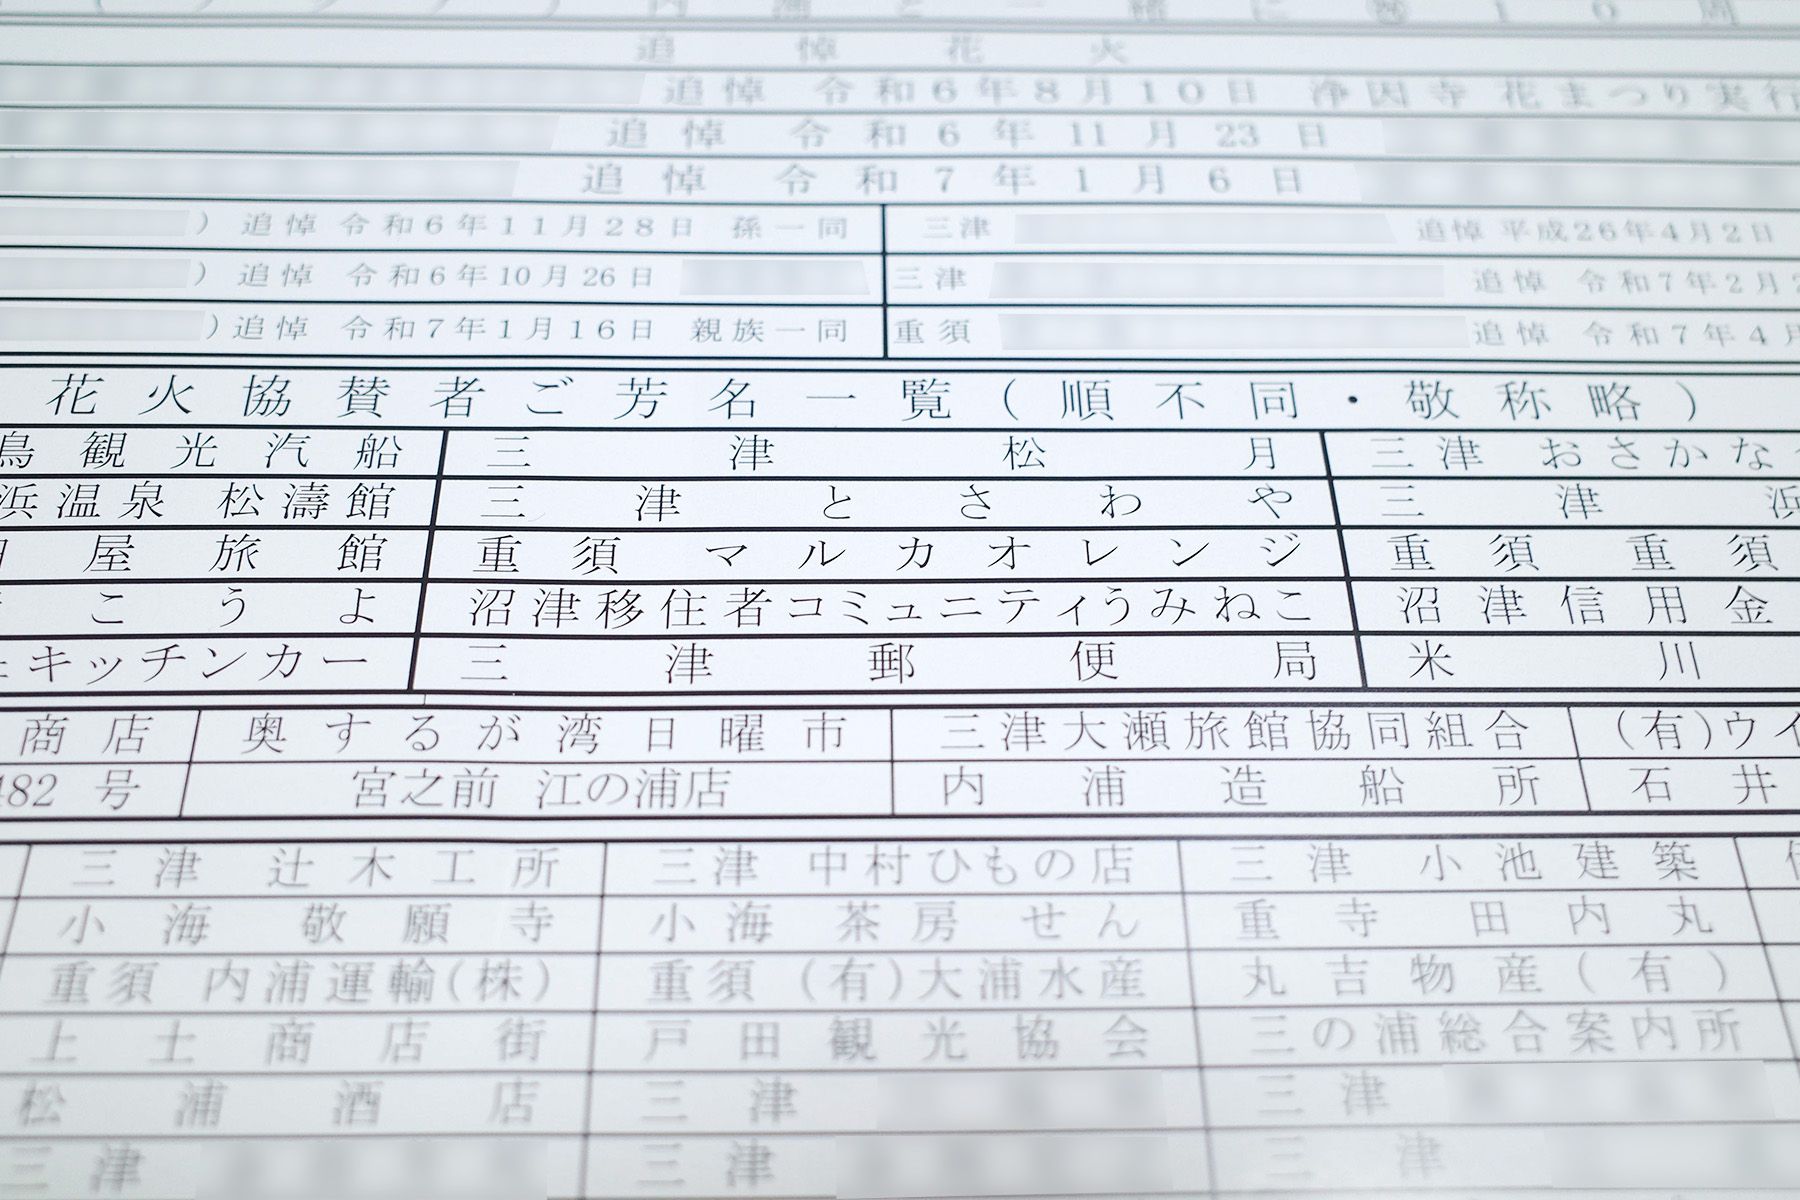 内浦と一緒に
追悼花火
追悼 令和6年8月10日 浄因寺花まつり実行
追悼 令和6年11月23日
追悼 令和7年1月6日
)追悼 令和6年11月28日 孫一同 三津 追悼 平成26年4月2日
)追悼 令和6年10月26日 三津 追悼 令和7年2月2
)追悼 令和7年1月16日 親族一同 重須 追悼 令和7年4月
花火協賛者ご芳名一覧(順不同・敬称略)
島観光汽船 三津松月 三津 おさかな
浜温泉 松濤館 三津とさわや 三津 浜
屋旅館 重須 マルカオレンジ 重須 重須
こうよ 沼津移住者コミュニティうみねこ 沼津信用金
キッチンカー 三津郵便局 米川
商店 奥するが湾日曜市 三津大瀬旅館協同組合 (有)ウイ
482号 宮之前 江の浦店 内浦造船所 石井
三津 辻木工所 三津 中村ひもの店 三津 小池建築
小海 敬願寺 小海 茶房せん 重寺 田内丸
重須 内浦運輸(株) 重須 (有)大浦水産 丸吉物産(有)
上土商店街 戸田観光協会 三の浦総合案内所
松浦酒店 三津 三津
三津 三津 三津